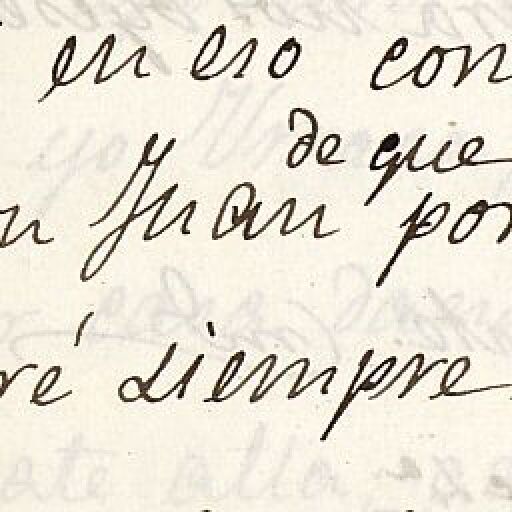 en eso con
de que
n Juan por
ré siempre